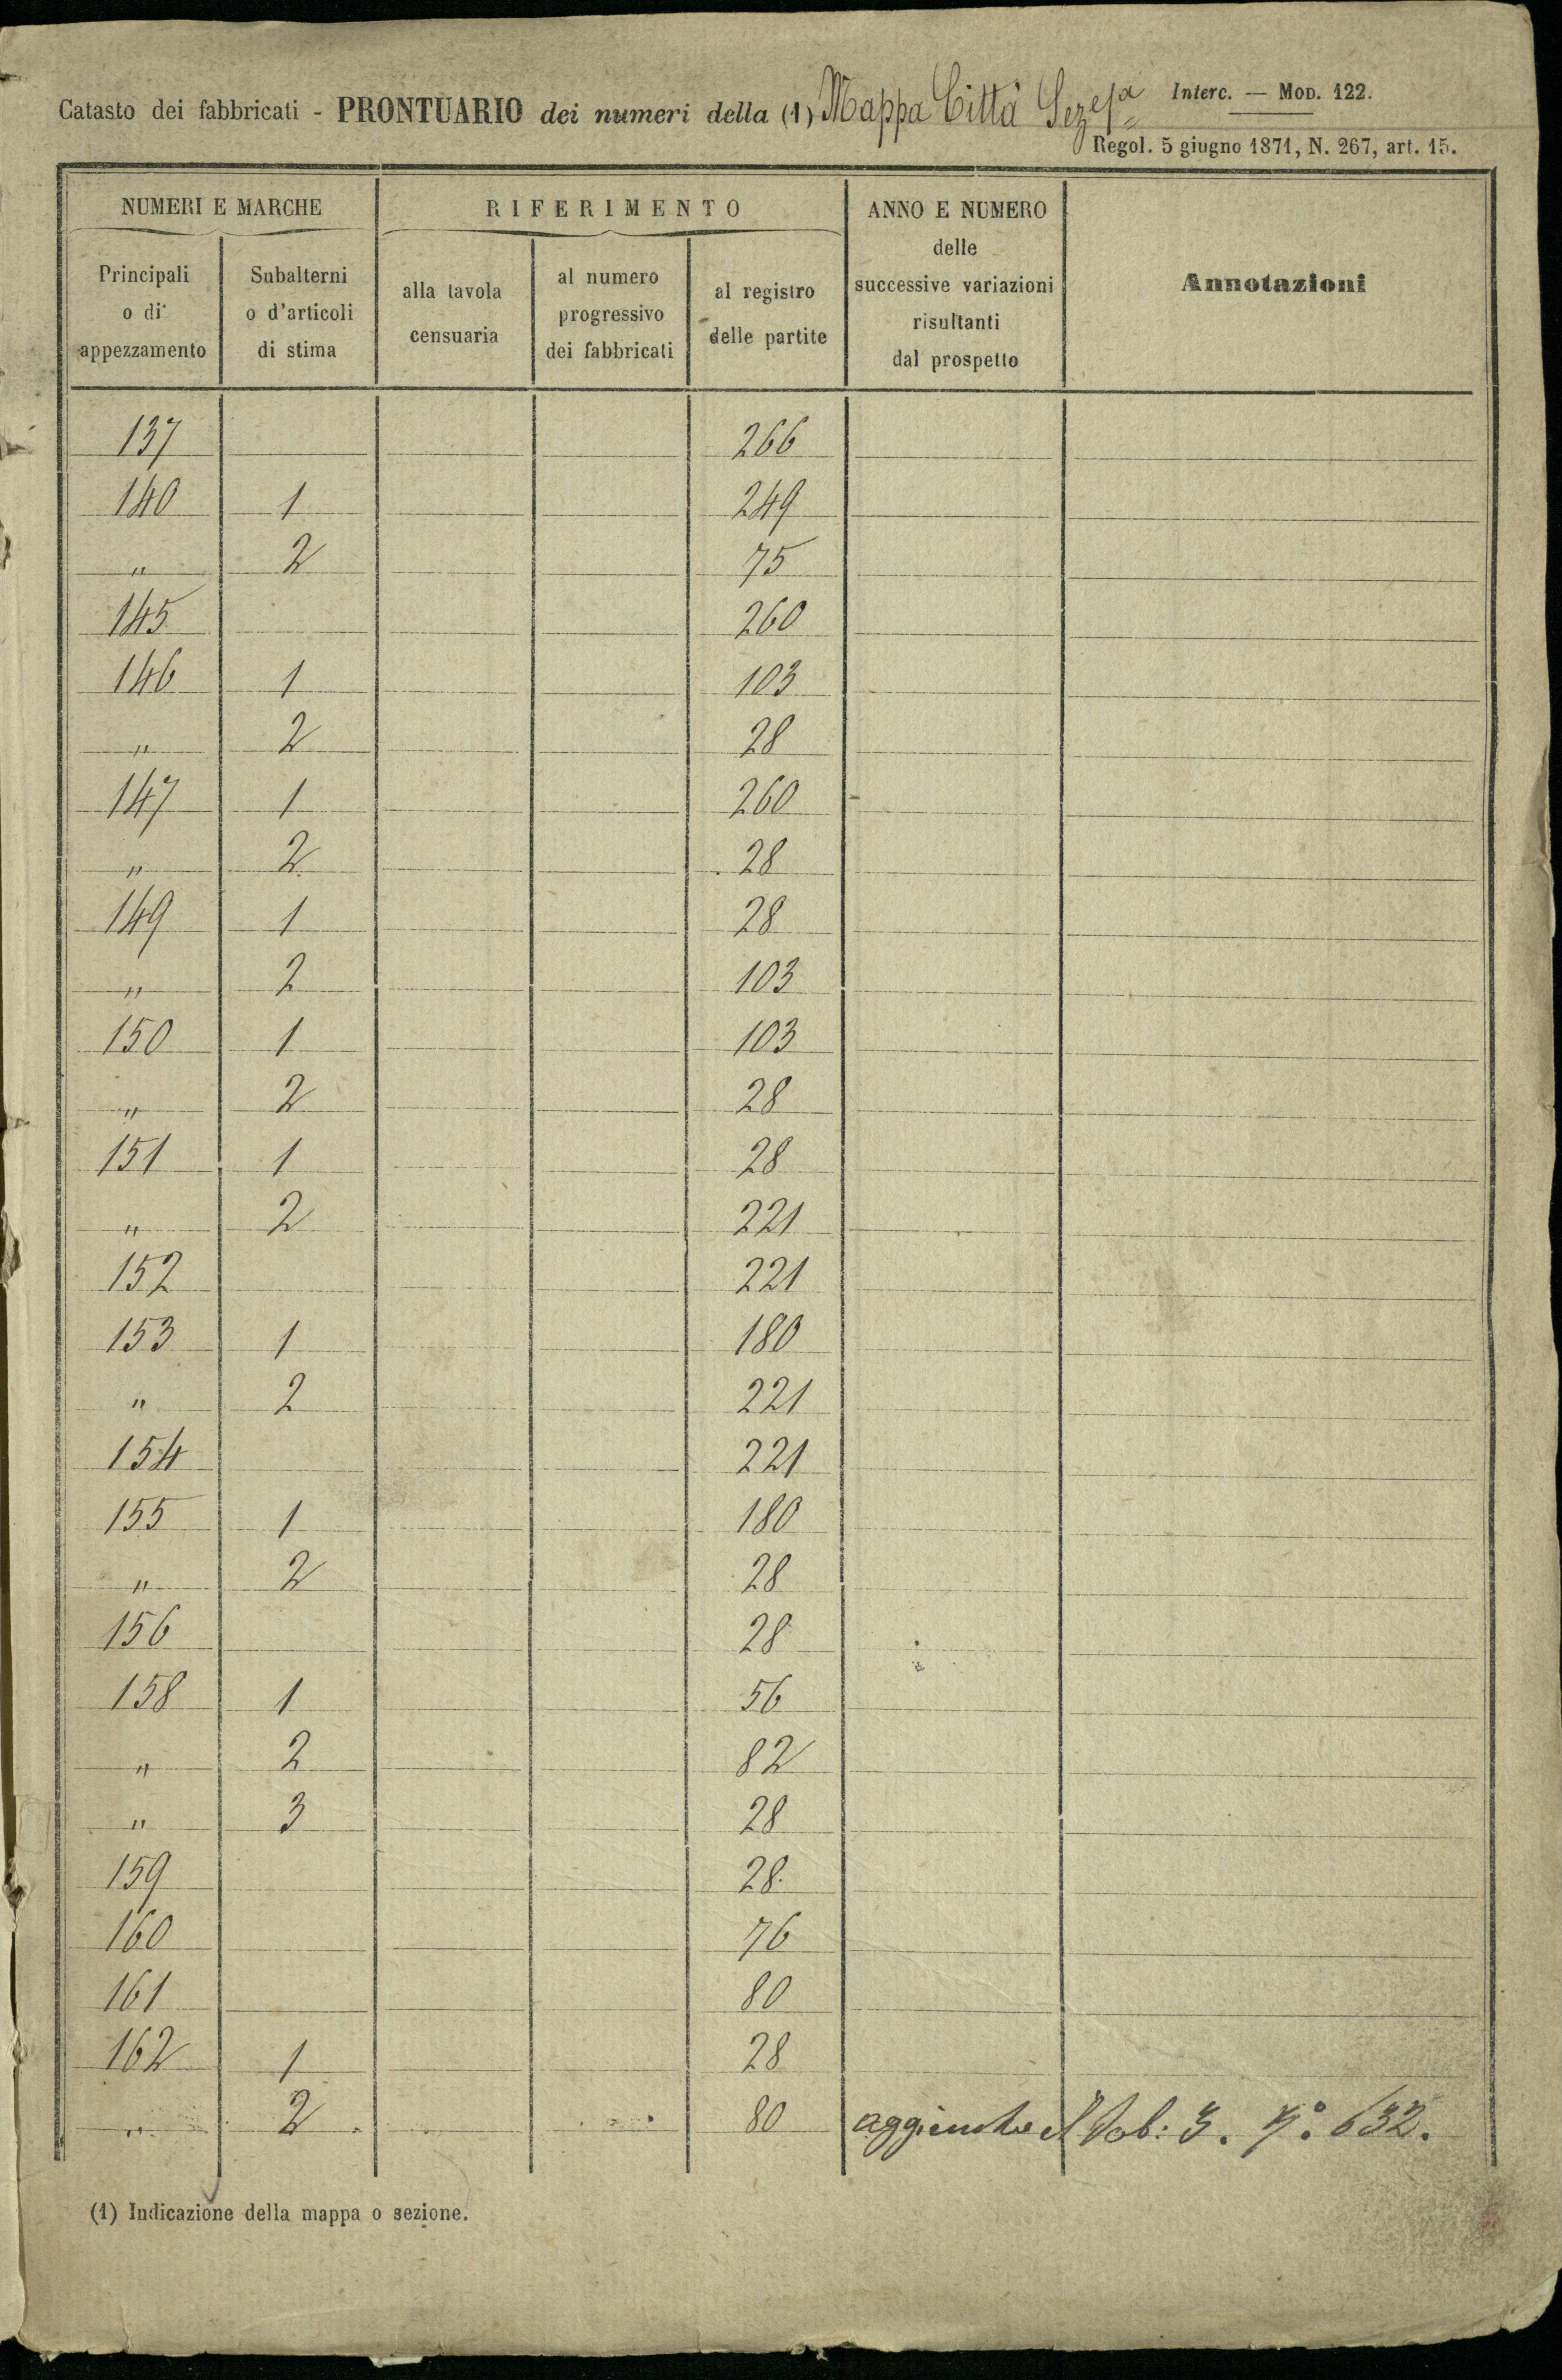 Catasto dei fabbricati - PRONTUARIO dei numeri della (1) Mappa Città Sez
Interc. — MOD. 122.
Regol. 5 giugno 1871, N. 267, art. 15.
NUMERI E MARCHE RIFERIMENTO ANNO E NUMERO delle successive variazioni risultanti dal prospetto Annotazioni
Principali o di appezzamento Subalterni o d'articoli di stima alla tavola censuaria al numero progressivo dei fabbricati al registro delle partite
137 266
140 1 249
" 2 75
145 260
146 1 103
" 2 28
147 1 260
" 2 28
149 1 28
" 2 103
150 1 103
" 2 28
151 1 28
" 2 221
152 221
153 1 180
" 2 221
154 221
155 1 180
" 2 28
156 28
158 1 56
" 2 82
" 3 28
159 28
160 76
161 80
162 1 28
" 2 80 3. N.° 632.
(1) Indicazione della mappa o sezione.